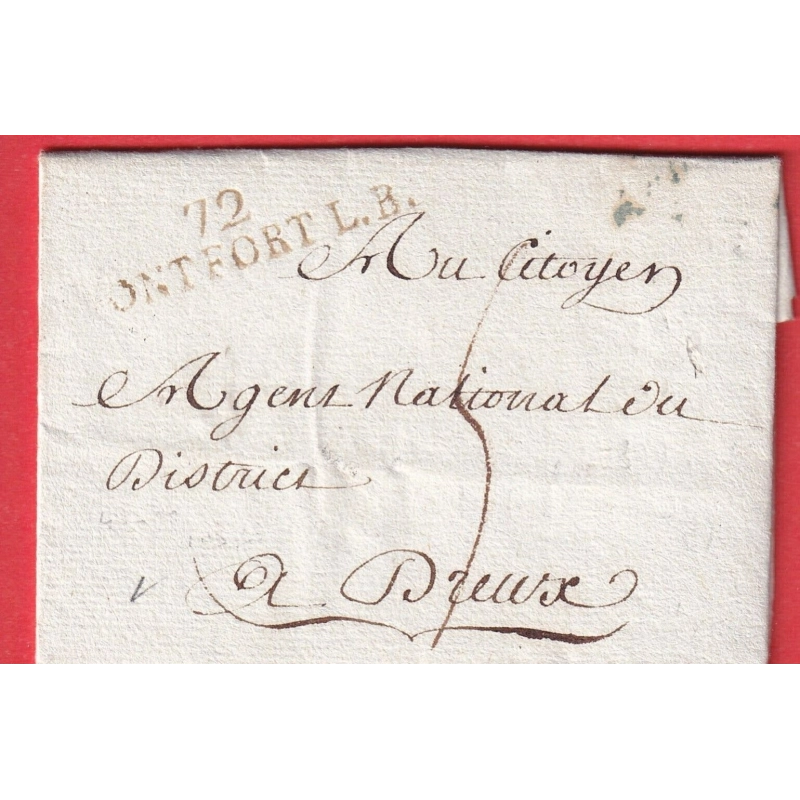 72
ONTFORT L.B.
Au Citoyen
Agent National du
District
a Dreux
5